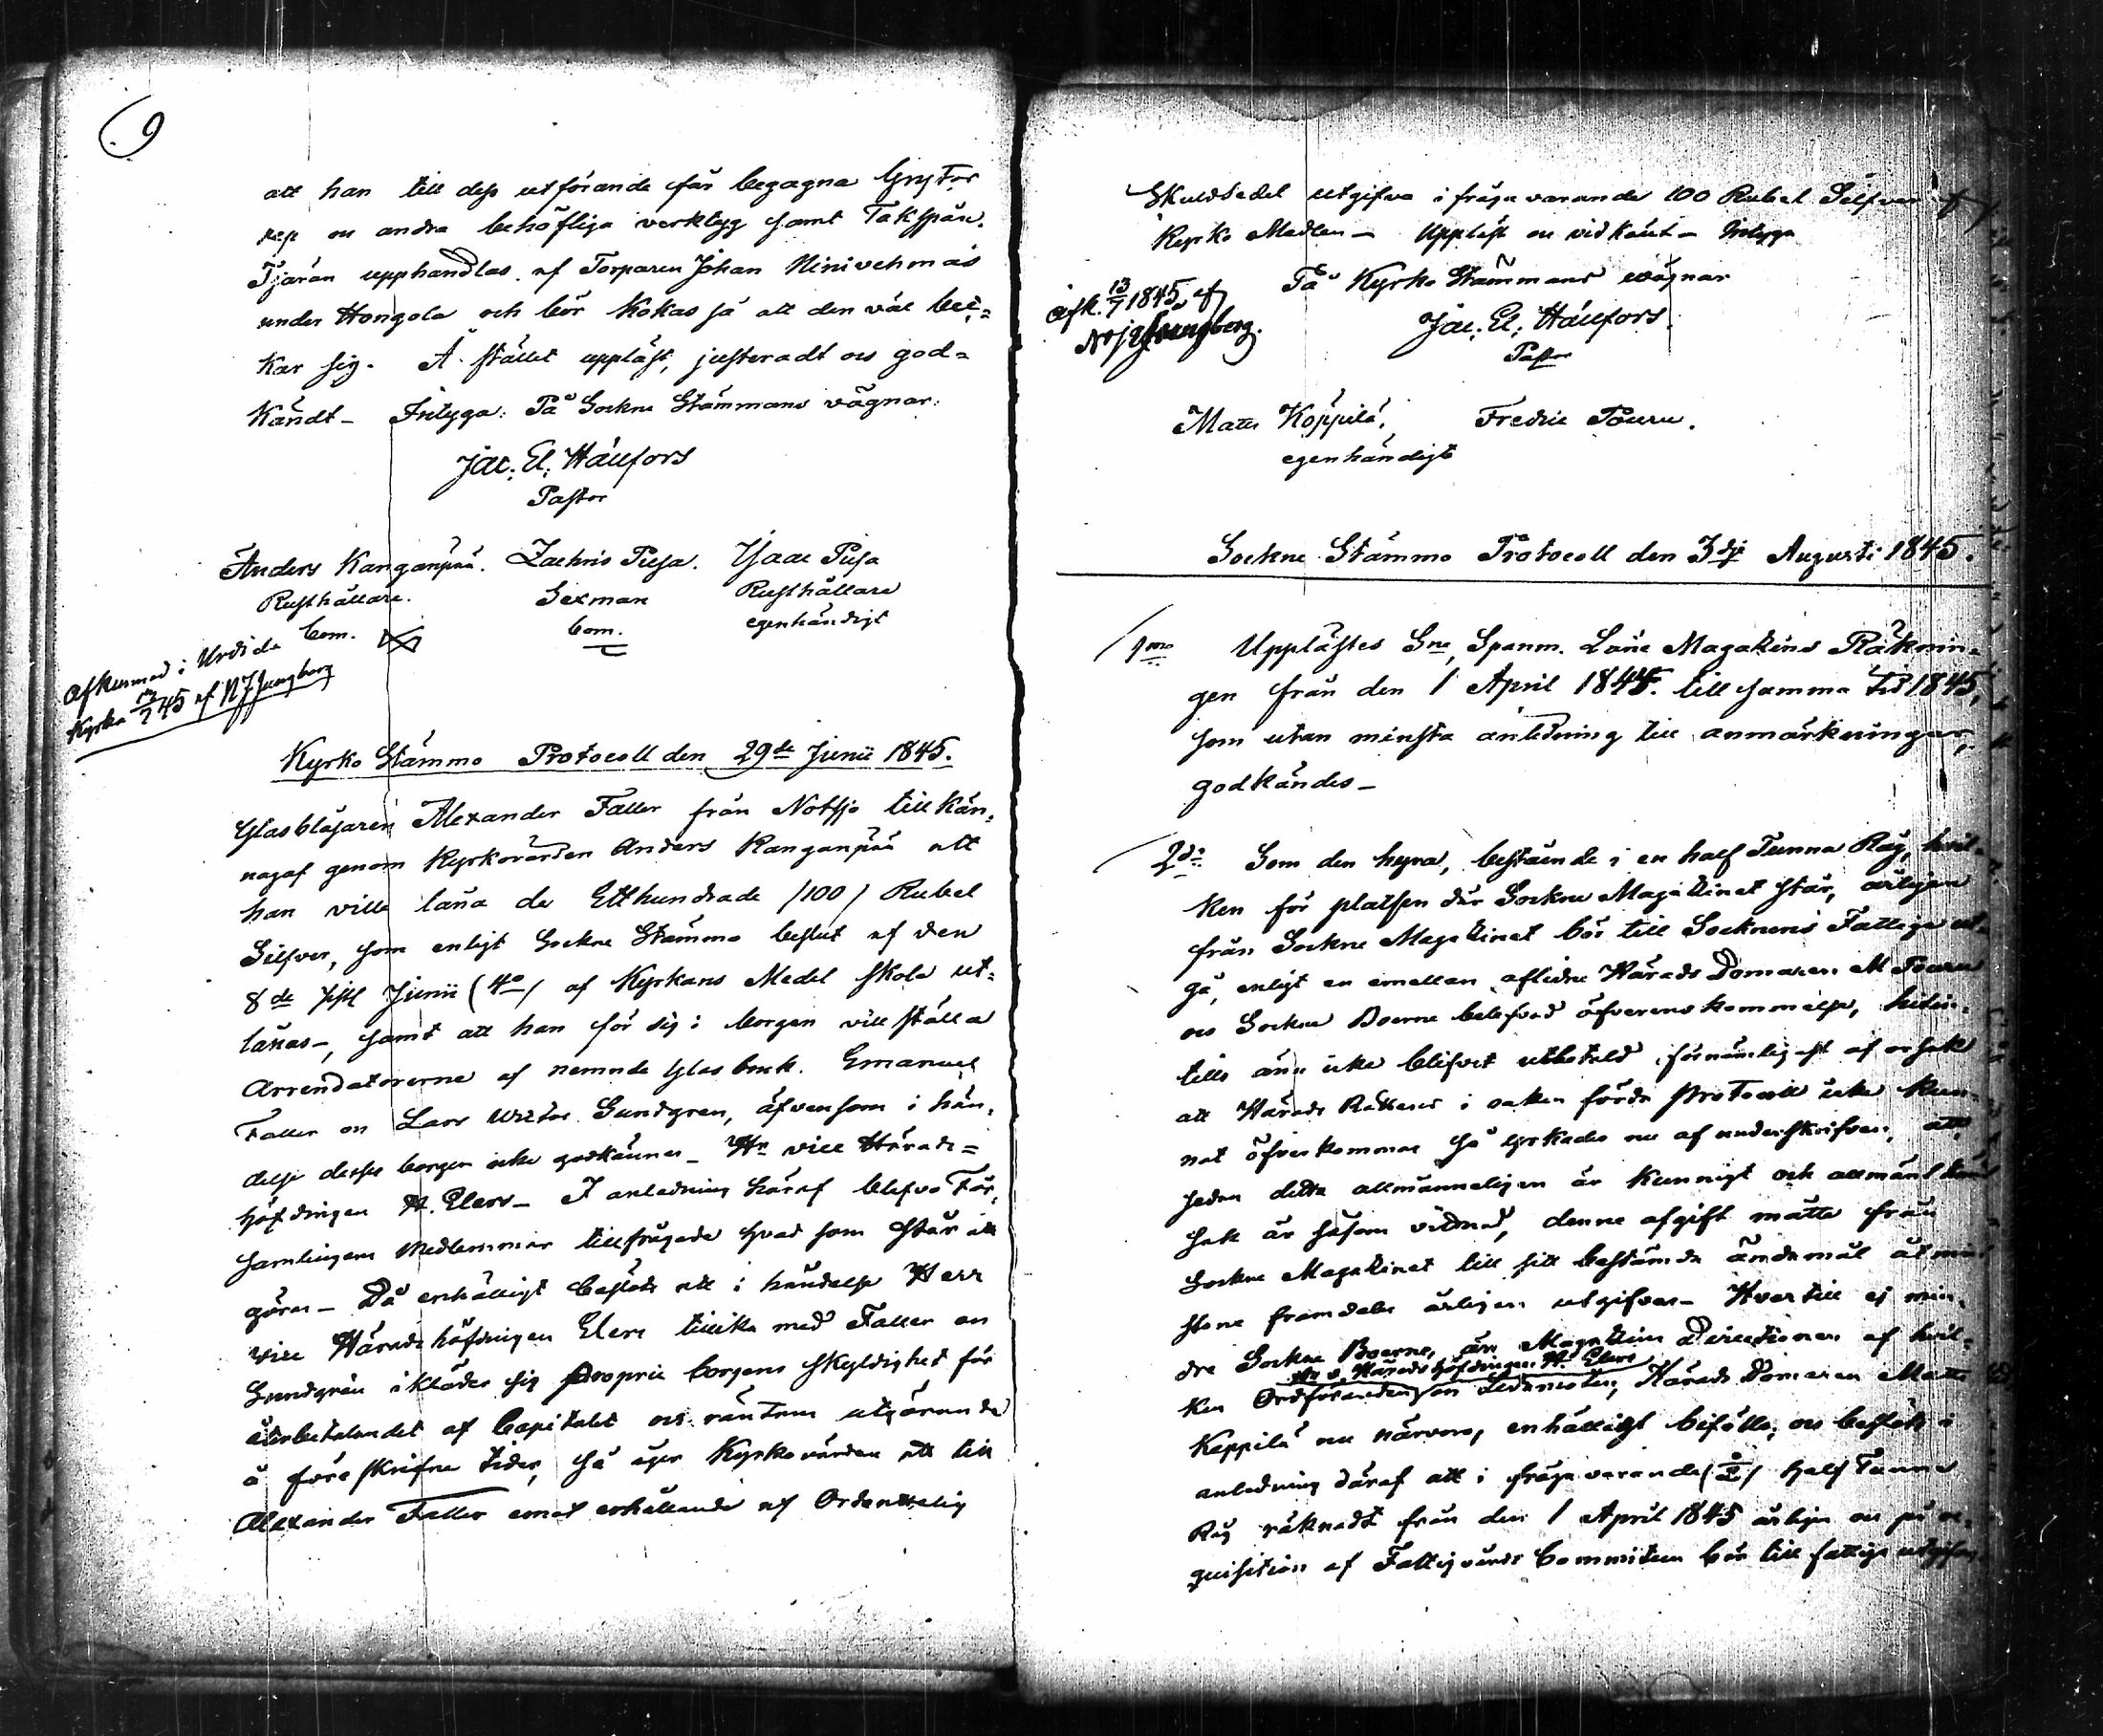 9
att han till dess utförande får begagna Grytor
dess oc andra behöfliga verktyg samt Takspån.
Tjäran upphandlas af Torparen Johan Ninivehmas
under Hongola och bör kokas så att den väl bec-
kar sig. Å stället uppläst, justeradt oc god-
kändt – Intyga: På Sockne Stämmans vägnar:
Jac. El. Hällfors
Pastor
Anders Kanganpää. Zachris Pusa. Isaac Pusa
Rusthållare. Sexman Rusthållare
Bom. Bom. egenhändigt
Afkunnad i Urdiala
Kyrka 13/7 45 af N J Ljungberg
Kyrko Stämmo Protocoll den 29de Junii 1845.
Glasblåsaren Alexander Faller från Notsjo tillkän-
nagaf genom Kyrkovärden Anders Kanganpää att
han ville låna de Etthundrade /100/ Rubel
Silfver, som enligt Sockne Stämmo beslut af den
8de sistl Junii (4o/ af Kyrkans Medel skola ut-
lånas –, samt att han för sig i borgen vill ställa
Arrendatorerne af nemnde Glasbruk. Emanuel
Faller oc Lars Wictor Sundgren, äfvensom i hän-
delse desses borgen icke godkännes – Hr vice Härads-
höfdingen A. Elers – I anledning häraf blefvo För-
samlingens Medlemmar tillfrågade hvad som står att
göras – Då enhälligt beslöts att i händelse Herr
vice Häradshöfdingen Elers tillika med Faller oc
Sundgren ikläder sig proprie borgens skyldighet för
återbetalandet af Capitalet oc räntans utgörande
å föreskrifne tider, så äger Kyrkovärden att till
Alexander Faller emot erhållande af Ordentelig
Skuldsedel utgifva i fråga varande 100 Rubel Silfver af
Kyrko Medlen – Uppläst oc vidkänt – Intyga
På Kyrko Stämmans wägnar
Jac. El. Hällfors.
Pastor
Afk. 13/7 1845, af
N J Ljungberg.
Matts Koppilä, Fredric Pouru.
egenhändigt
Sockne Stämmo Protocoll den 3dje Augusti 1845.
1mo Upplästes Sne Spanm. Låne Magazins Räknin-
gen från den 1 April 1844. till samma tid 1845,
som utan minsta anledning till anmärkningar,
godkändes –
2do Som den hyra, bestående i en half Tunna Råg, hvil-
ken för platsen där Sockne Magazinet står, årligen
från Sockne Magazinet bör till Socknens Fattiga ut-
gå, enligt en emellan aflidne Härads Domaren M Pouru
oc Sockne Boerne belefvad öfverenskommelse, hitin-
tills änn icke blifvit utbetald, förnämligast af orsak
att Härads Rättens i saken förda Protocoll icke kun-
nat öfverkommas så yrkades nu af underskrifven, att
sedan detta allmänneligen är kunnigt och allmänt känd
sak är såsom vidnad, denne afgift måtte från
Sockne Magazinet till sitt bestämda ändamål åtmin-
stone framdeles årligen utgifvas – Hvartill ej min-
dre Sockne Boerne, än Magazins Directionen af hvil-
Hr v. Häradshöfdingen A. Elers
ken Ordföranden oc Ledamoten, Härads Domaren Matts
Koppilä nu närvoro, enhälligt biföllo, oc beslöts i
anledning däraf att i fråga varande (½/ half Tunna
Råg räknadt från den 1 April 1845 årligen oc på re-
quisition af Fattigvårds Committeen bör till fattiga utgifvas